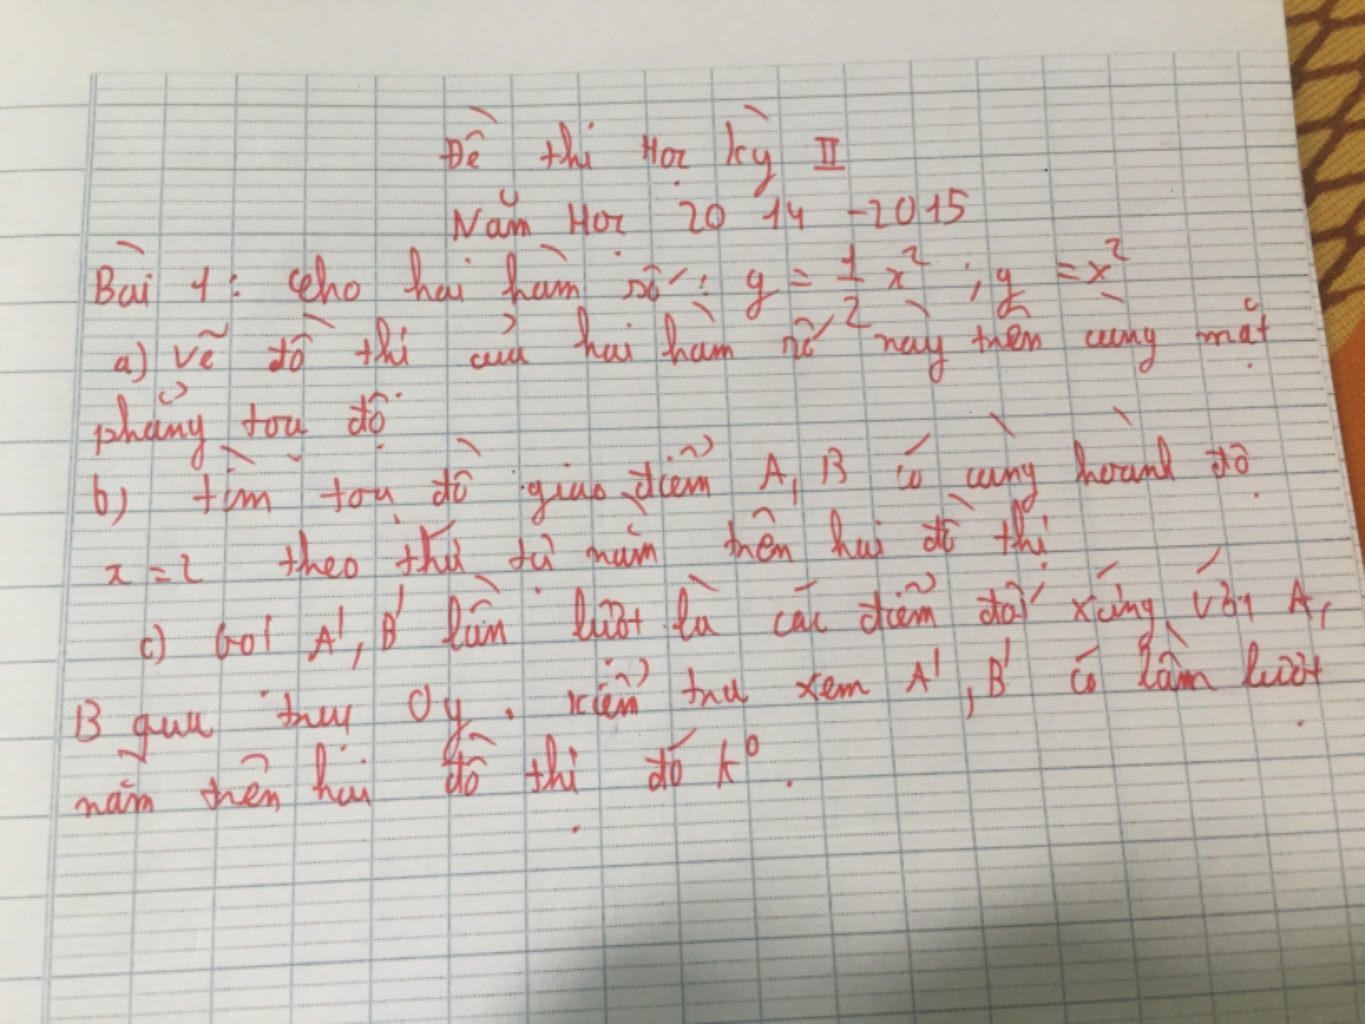 Đề thi Học kỳ II
Năm Học 20 14 - 2015
Bài 1: Cho hai hàm số: y = 1/2 x² ; y = x²
a) vẽ đồ thi của hai hàm số này trên cùng mặt
phẳng toạ độ
b) tìm toạ độ giao điểm A, B có cùng hoành độ
x = 2 theo thứ tự nằm trên hai đồ thị
c) Gọi A', B' lần lượt là các điểm đối xứng với A,
B qua trục Oy. kiểm tra xem A', B' có lần lượt
nằm trên hai đồ thị đó k⁰.